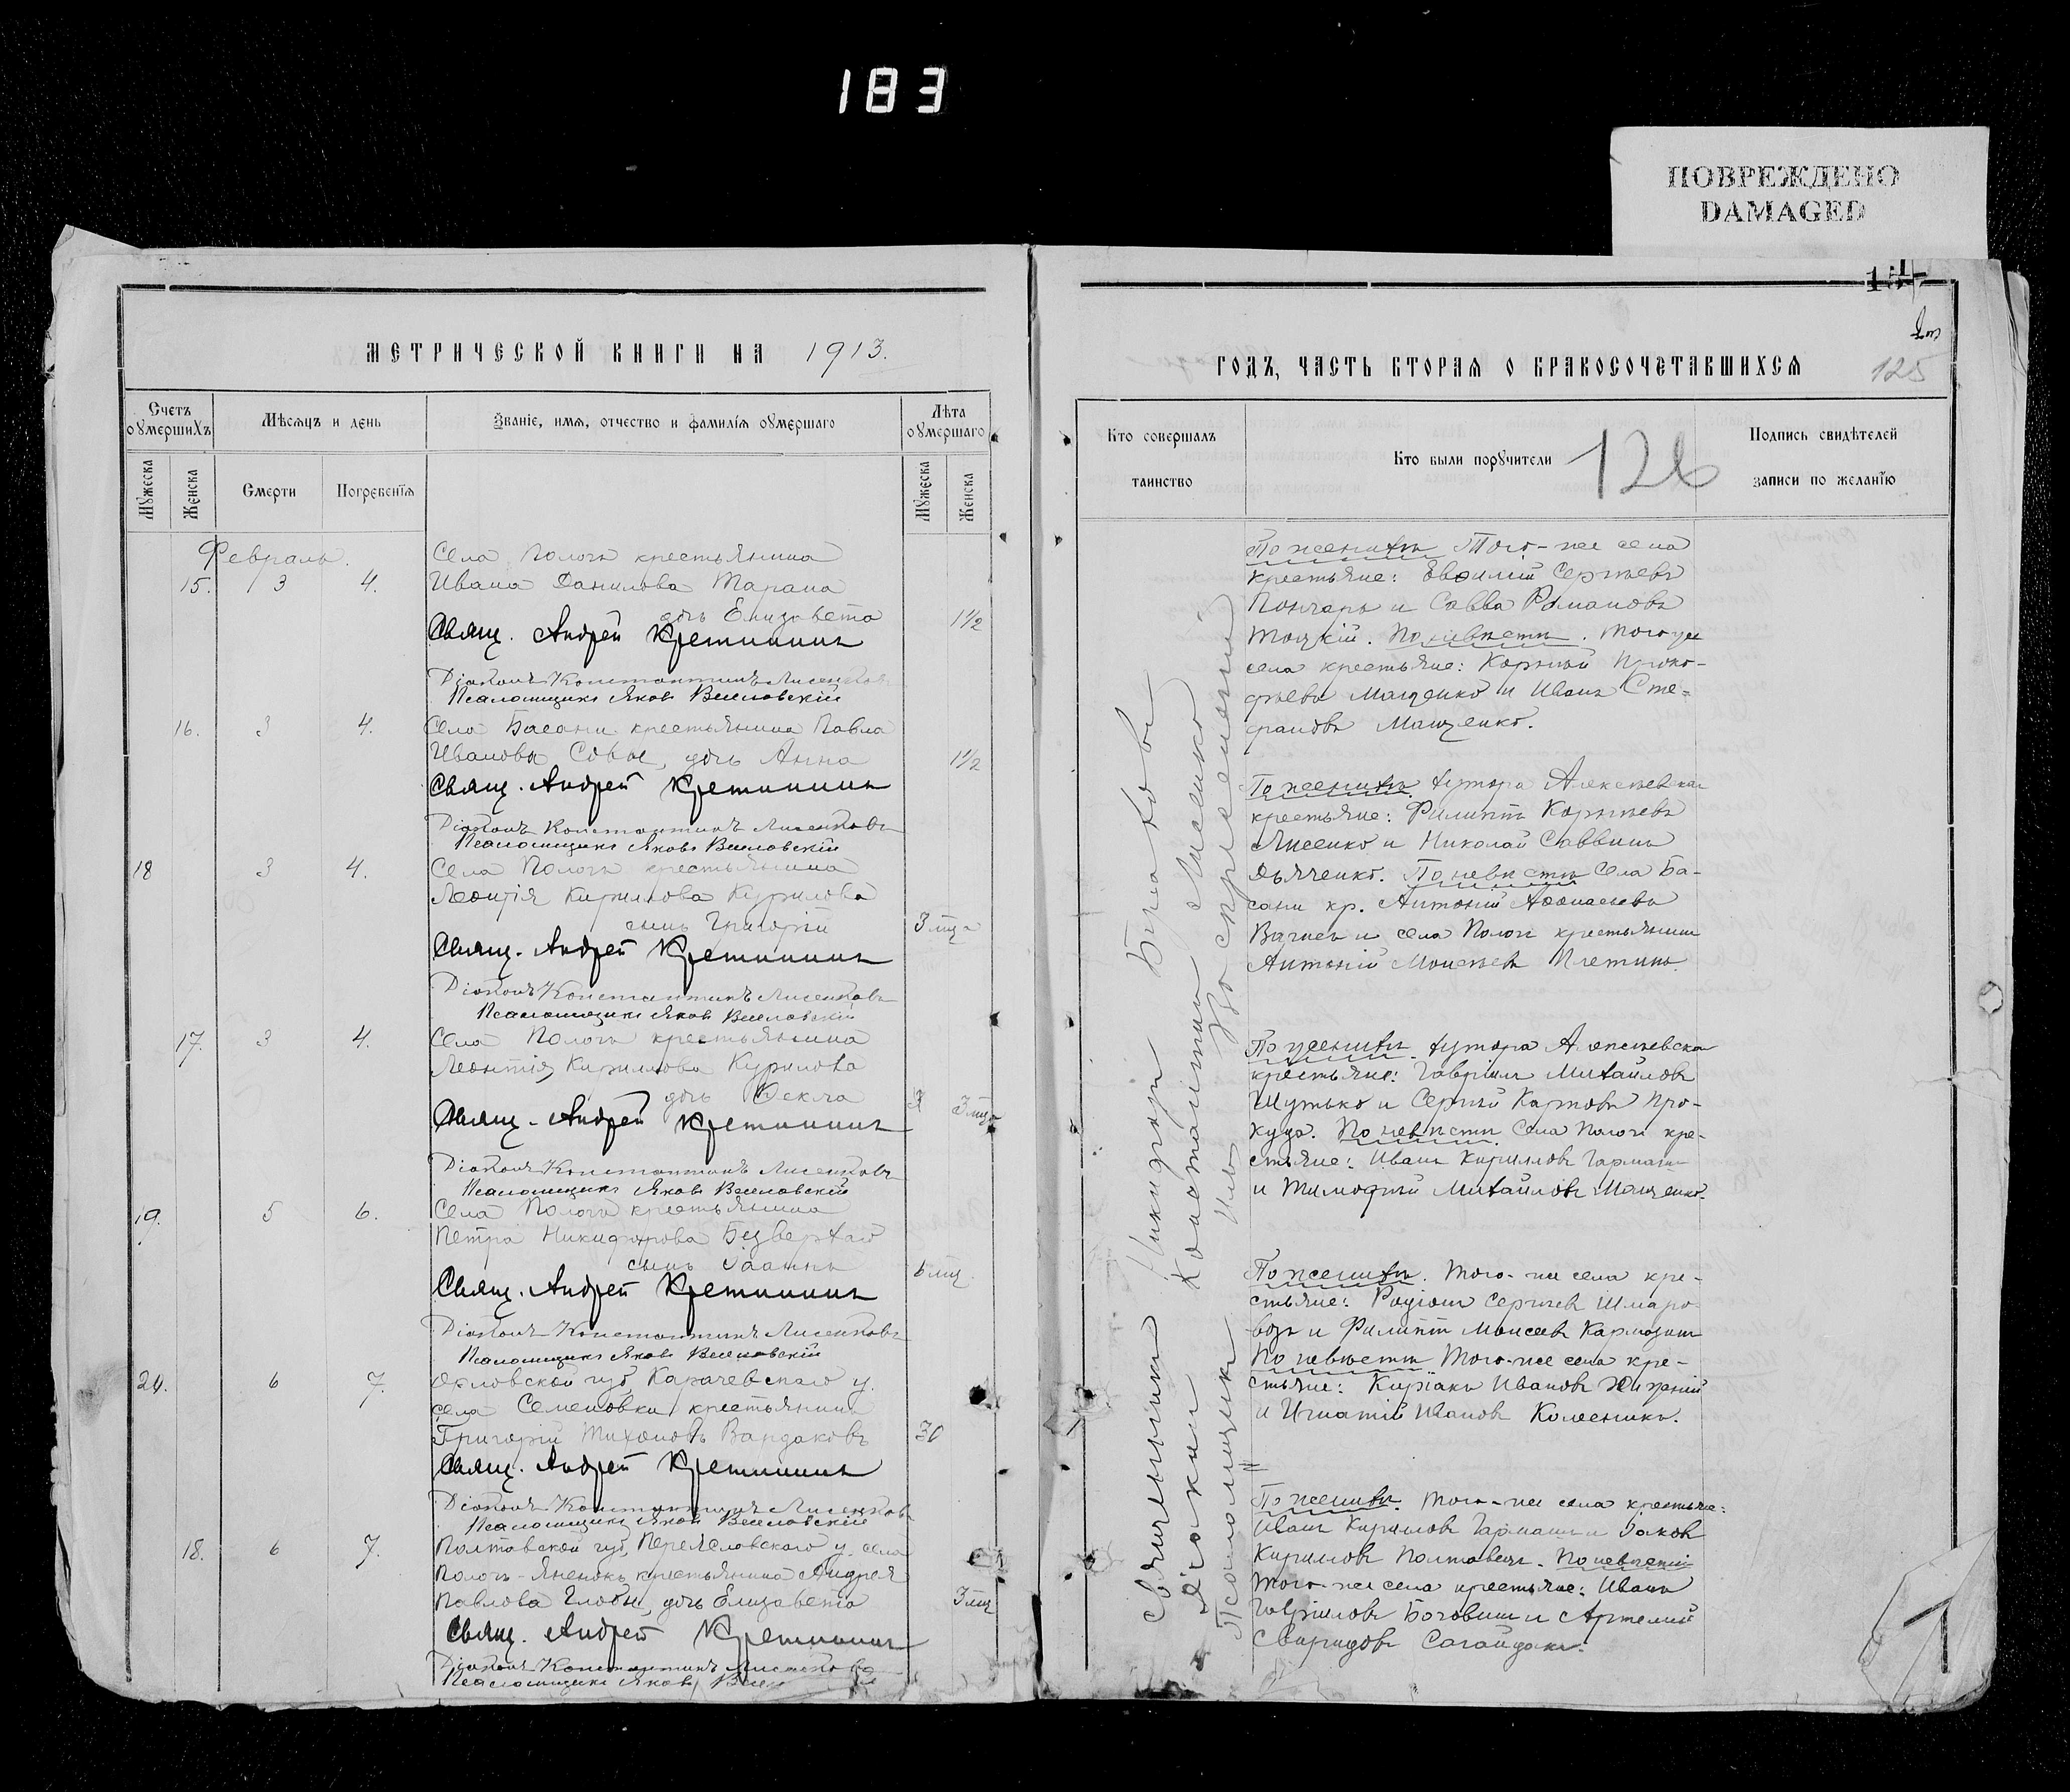 183
ПОВРЕЖДЕНО
DAMAGED
МЕТРИЧЕСКОЙ КНИГИ НА 1913.
Счетъ оумершихъ
Мѣсяцъ и день
Званіе, имя, отчество и фамилія оумершаго
Лѣта оумершаго
Мужеска
Женска
Смерти
Погребенія
Мужеска
Женска
Февраль.
Села Пологъ крестьянина
15. 3 4. Ивана Данилова Тарана
дочь Елизавета 1½
Свящ. Андрей Кретининъ
Діаконъ Константинъ Лисенковъ
Псаломщикъ Яковъ Веселовскій
16. 3 4. Села Басани крестьянина Павла
Иванова Совы, дочь Анна 1½
Свящ. Андрей Кретининъ
Діаконъ Константинъ Лисенковъ
Псаломщикъ Яковъ Веселовскій
18 3 4. Села Пологъ крестьянина
Леонтія Кирилова Курилова
сынъ Григорій 3 мца
Свящ. Андрей Кретининъ
Діаконъ Константинъ Лисенковъ
Псаломщикъ Яковъ Веселовскій
17. 3 4. Села Пологъ крестьянина
Леонтія Кириллова Курилова
дочь Ѳекла 3 мца
Свящ. Андрей Кретининъ
Діаконъ Константинъ Лисенковъ
Псаломщикъ Яковъ Веселовскій
19. 5 6. Села Пологъ крестьянина
Петра Никифорова Безверхаго
сынъ Іоаннъ 6 мц.
Свящ. Андрей Кретининъ
Діаконъ Константинъ Лисенковъ
Псаломщикъ Яковъ Веселовскій
20. 6 7. Орловской губ. Карачевскаго у.
села Семеновки крестьянинъ
Григорій Тихоновъ Вардаковъ 30
Свящ. Андрей Кретининъ
Діаконъ Константинъ Лисенковъ
Псаломщикъ Яковъ Веселовскій
18. 6 7. Полтавской губ. Переяславскаго у. села
Пологъ-Яненокъ крестьянина Андрея
Павлова Глобы, дочь Елизавета 3 мц
Свящ. Андрей Кретининъ
Діаконъ Константинъ Лисенковъ
Псаломщикъ Яковъ
ГОДЪ, ЧАСТЬ ВТОРАЯ О БРАКОСОЧЕТАВШИХСЯ
125
Кто совершалъ таинство
Кто были поручители
126
Подпись свидѣтелей записи по желанію
Священникъ Никифоръ
Діаконъ Константинъ Лисенко
Псаломщикъ Илья Воскресенскій
По женихѣ Того-же села
крестьяне: Евѳимій Сергѣевъ
Пончаръ и Савва Романовъ
Тоцкій. По невѣстѣ. Того же
села крестьяне: Корнилій Проко-
фьевъ Мащенко и Иванъ Сте-
фановъ Мащенко.
По женихѣ. хутора Алексѣевка
крестьяне: Филиппъ Корнѣевъ
Лисенко и Николай Саввинъ
Дьяченко. По невѣстѣ Села Ба-
сани кр. Антоній Аѳонасьевъ
и села Пологи крестьянин
Антоній Моисеевъ Плетинь.
По женихѣ. хутора Алексѣевска
крестьяне: Гавріилъ Михайловъ
Шутько и Сергѣй Карповъ Про-
куда. По невѣстѣ. Села Пологи кре-
стьяне: Иванъ Кирилловъ Гармашъ
и Тимоѳей Михайловъ Мащенко.
По женихѣ. Того-же села кре-
стьяне: Родіонъ Сергѣевъ Шмаро-
возъ и Филиппъ Моисеевъ Кармазинъ
По невѣстѣ Того-же села кре-
стьяне: Киріакъ Ивановъ
и Игнатій Ивановъ Колесникъ.
По женихѣ. Того-же села крестьяне:
Иванъ Кириловъ Гармашъ и Іаковъ
Кирилловъ Полтавецъ. По невѣстѣ
Того-же села крестьяне: Иванъ
Гавріиловъ Боговинъ и Артемій
Свиридовъ Сагайдакъ.